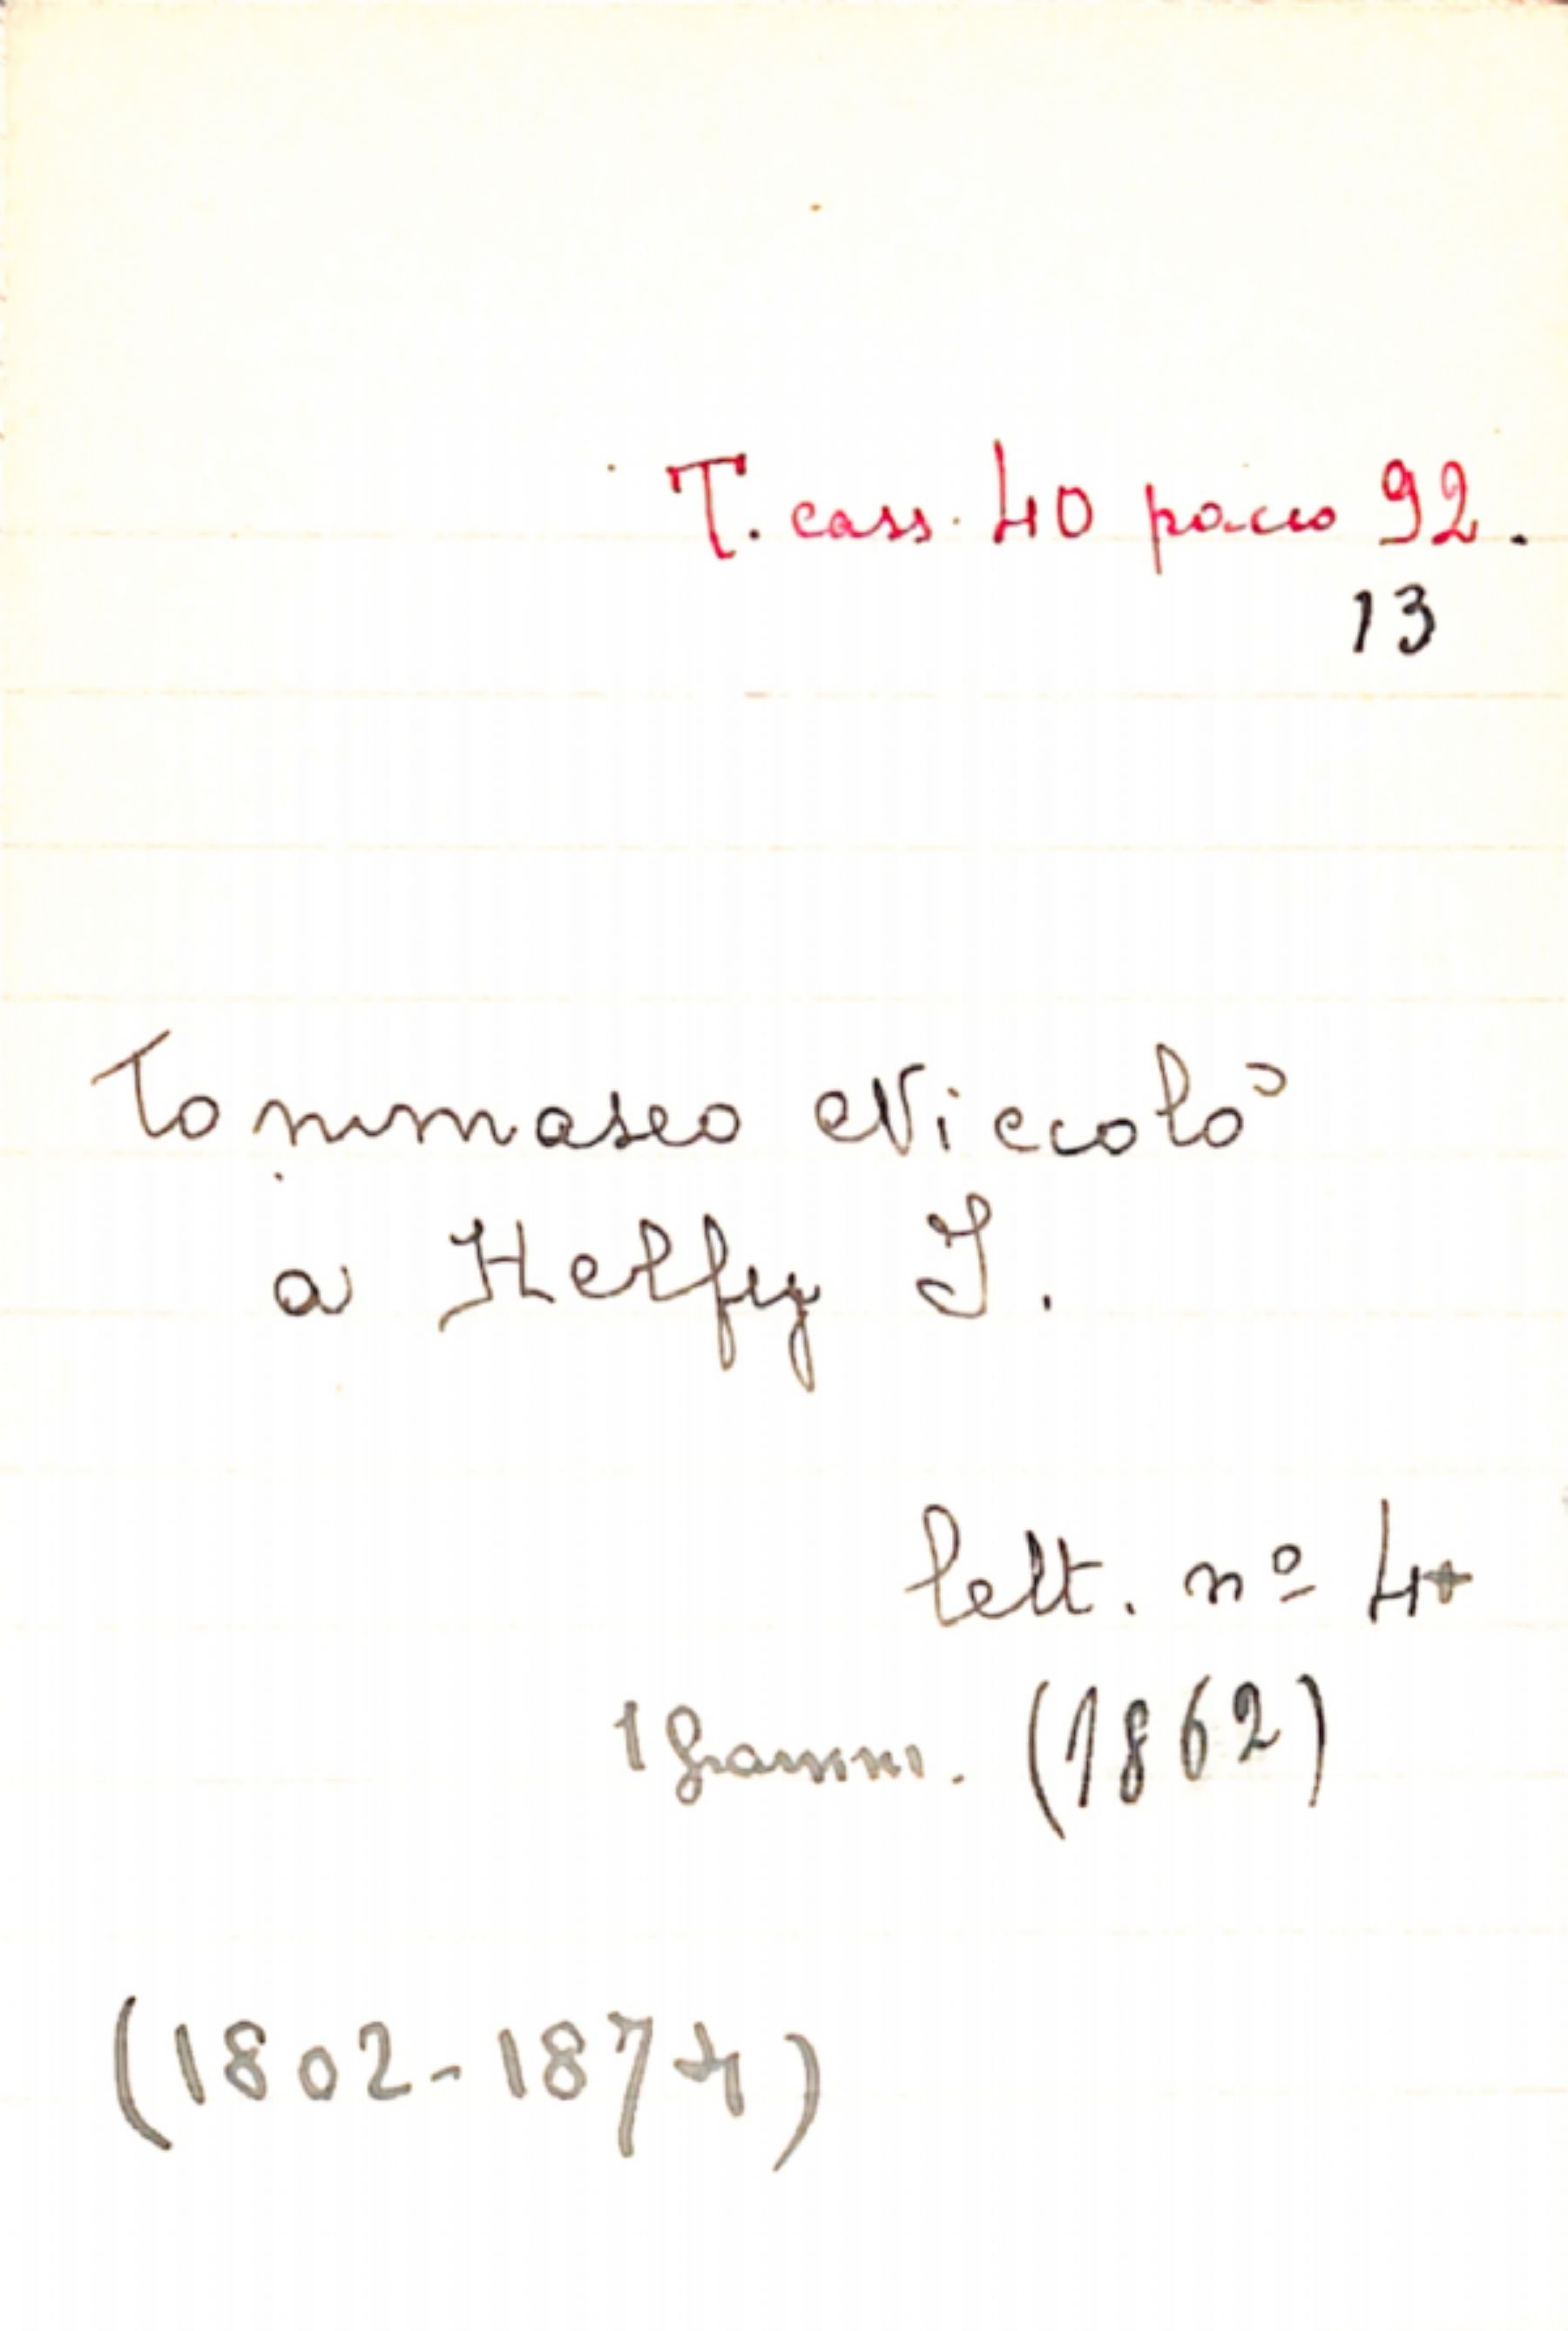 T. cass. 40 pacco 92.
13
Tommaseo Niccolò
a Helfy I.
lett. nº 4+
1 framm. (1862)
(1802-1874)